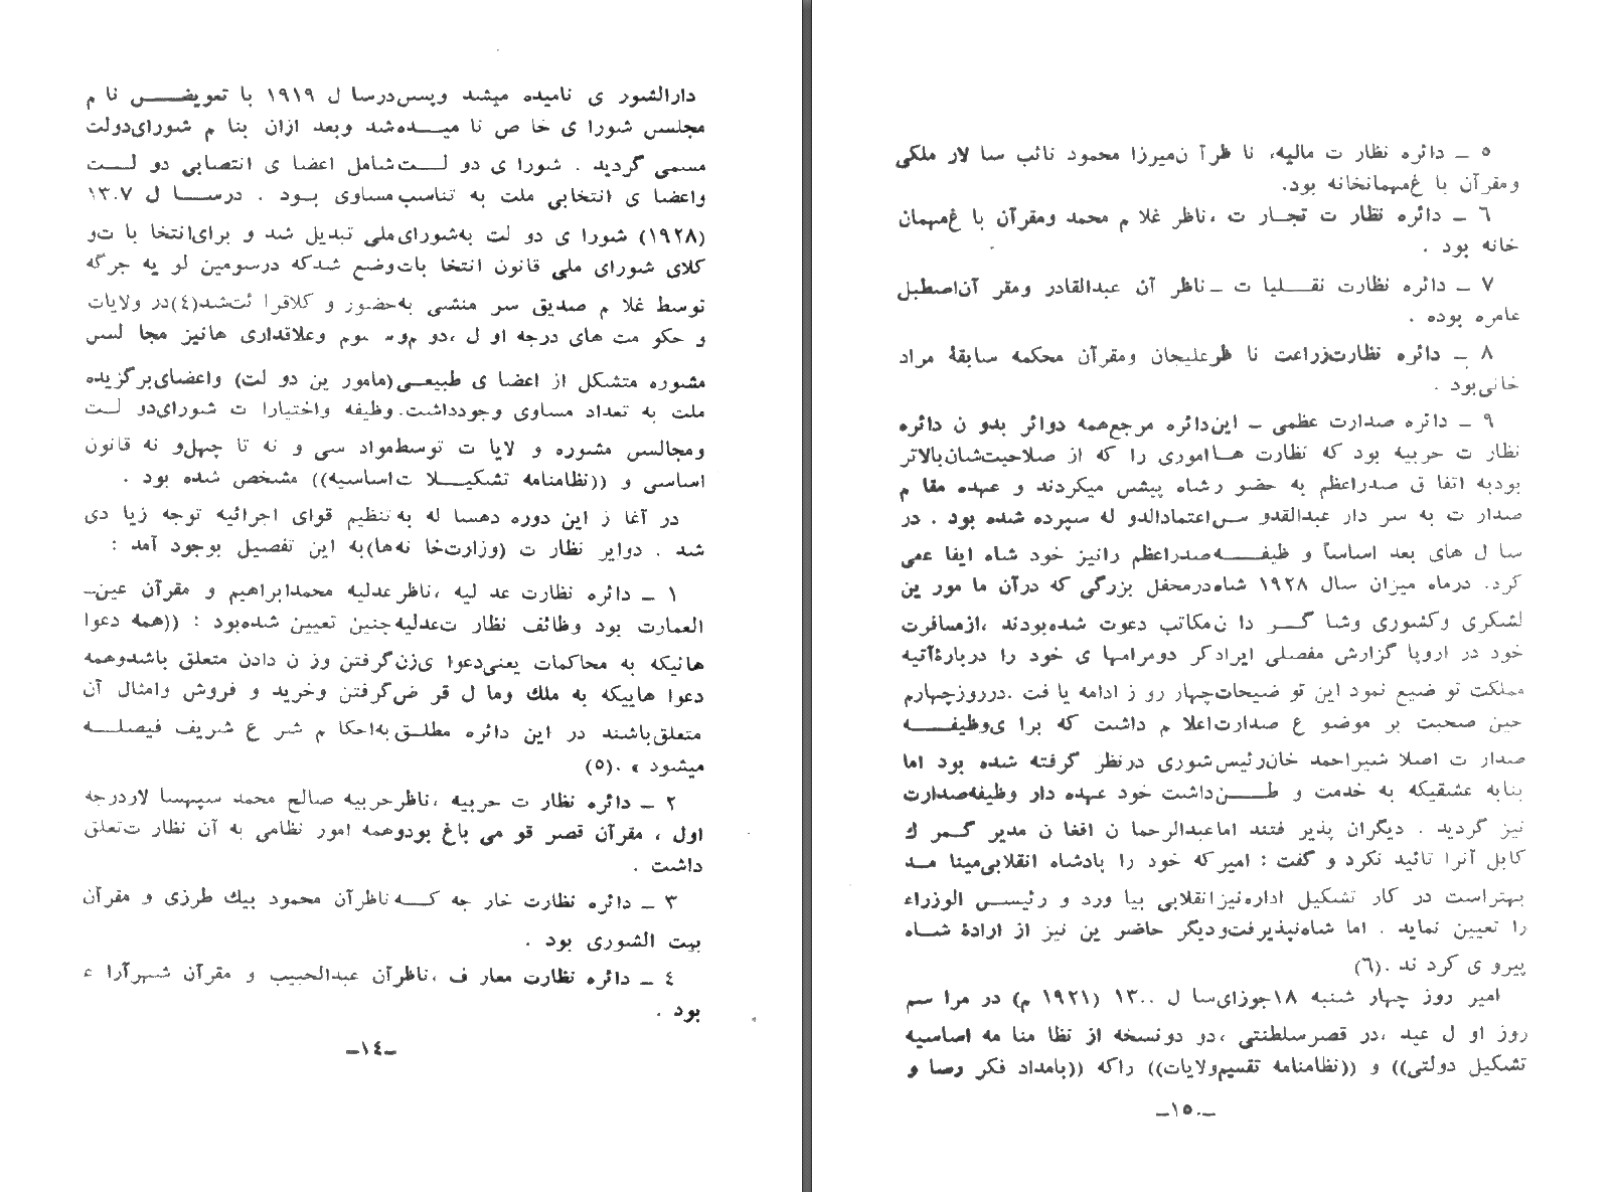 دارالشورای نامیده میشد وپس درسال ۱۹۱۹ با تعویض نام
مجلس شورای خاص نامیده شد وبعد ازان بنام شورای دولت
مسمی گردید . شورای دولت شامل اعضای انتصابی دولت
واعضای انتخابی ملت به تناسب مساوی بود . درسال ۱۳۰۷
(۱۹۲۸) شورای دولت به شورای ملی تبدیل شد و برای انتخابات و
کلای شورای ملی قانون انتخابات وضع شد که درسومین لویه جرگه
توسط غلام صدیق سر منشی به حضور و کلاقرائت شد(٤)در ولایات
و حکومت های درجه اول ،دوم و سوم وعلاقداری هانیز مجالس
مشوره متشکل از اعضای طبیعی (مامورین دولت) واعضای برگزیده
ملت به تعداد مساوی وجودداشت. وظیفه واختیارات شورای دولت
ومجالس مشوره ولایات توسط مواد سی و نه تا چهل و نه قانون
اساسی و ((نظامنامه تشکیلات اساسیه)) مشخص شده بود .
در آغاز این دوره دهساله به تنظیم قوای اجرائیه توجه زیادی
شد . دوایر نظارت (وزارت خانه ها)به این تفصیل بوجود آمد :
۱ – دائره نظارت عدلیه ،ناظر عدلیه محمدابراهیم و مقرآن عین–
العمارت بود وظائف نظارت عدلیه چنین تعیین شده بود : ((همه دعوا
هائیکه به محاکمات یعنی دعوای زن گرفتن وزن دادن متعلق باشدوهمه
دعوا هاییکه به ملك ومال قرض گرفتن وخرید و فروش وامثال آن
متعلق باشند در این دائره مطلق به احکام شرع شریف فیصله
میشود » .(٥)
۲ – دائره نظارت حربیه ،ناظر حربیه صالح محمد سپهسالاردرجه
اول ، مقرآن قصر قومی باغ بودوهمه امور نظامی به آن نظارت تعلق
داشت .
۳ – دائره نظارت خارجه که ناظرآن محمود بیك طرزی و مقرآن
بیت الشوری بود .
٤ – دائره نظارت معارف ،ناظرآن عبدالحبیب و مقرآن شهرآراء
بود .
–١٤–
٥ – دائره نظارت مالیه، ناظرآن میرزا محمود نائب سالار ملکی
ومقرآن باغ مهمانخانه بود.
٦ – دائره نظارت تجارت ،ناظر غلام محمد ومقرآن باغ مهمان
خانه بود .
۷ – دائره نظارت نقلیات – ناظر آن عبدالقادر ومقر آن اصطبل
عامره بوده .
۸ – دائره نظارت زراعت ناظر علیجان ومقرآن محکمه سابقهٔ مراد
خانی بود .
۹ – دائره صدارت عظمی – این دائره مرجع همه دوائر بدون دائره
نظارت حربیه بود که نظارت ها اموری را که از صلاحیت شان بالاتر
بودبه اتفاق صدراعظم به حضور شاه پیش میکردند و عهده مقام
صدارت به سردار عبدالقدوس اعتمادالدوله سپرده شده بود . در
سال های بعد اساساً وظیفه صدراعظم رانیز خود شاه ایفا عمی
کرد. درماه میزان سال ۱۹۲۸ شاه درمحفل بزرگی که درآن مامورین
لشکری وکشوری وشاگردان مکاتب دعوت شده بودند ،ازمسافرت
خود در اروپا گزارش مفصلی ایرادکر دومرامهای خود را دربارهٔ آتیه
مملکت توضیع نمود این توضیحات چهار روز ادامه یافت .درروزچهارم
حین صحبت بر موضوع صدارت اعلام داشت که برای وظیفه
صدارت اصلا شیراحمد خان رئیس شوری درنظر گرفته شده بود اما
بنابه عشقیکه به خدمت وطن داشت خود عهده دار وظیفه صدارت
نیز گردید . دیگران پذیرفتند اماعبدالرحمان افغان مدیر گمرك
کابل آنرا تائید نکرد و گفت : امیر که خود را پادشاه انقلابی مینامد
بهتراست در کار تشکیل اداره نیز انقلابی بیاورد و رئیس الوزراء
را تعیین نماید . اما شاه نپذیرفت و دیگر حاضرین نیز از ارادهٔ شاه
پیروی کردند .(٦)
امیر روز چهار شنبه ۱۸جوزای سال ۱۳۰۰ (۱۹۲۱ م) در مراسم
روز اول عید ،در قصر سلطنتی ،دو دونسخه از نظامنامه اساسیه
تشکیل دولتی)) و ((نظامنامه تقسیم ولایات)) راکه ((بامداد فکر رسا و
–١٥٠–